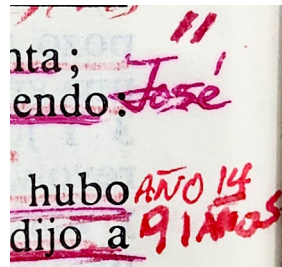 nta;
endo: José
hubo AÑO 14
dijo a 91 AÑOS